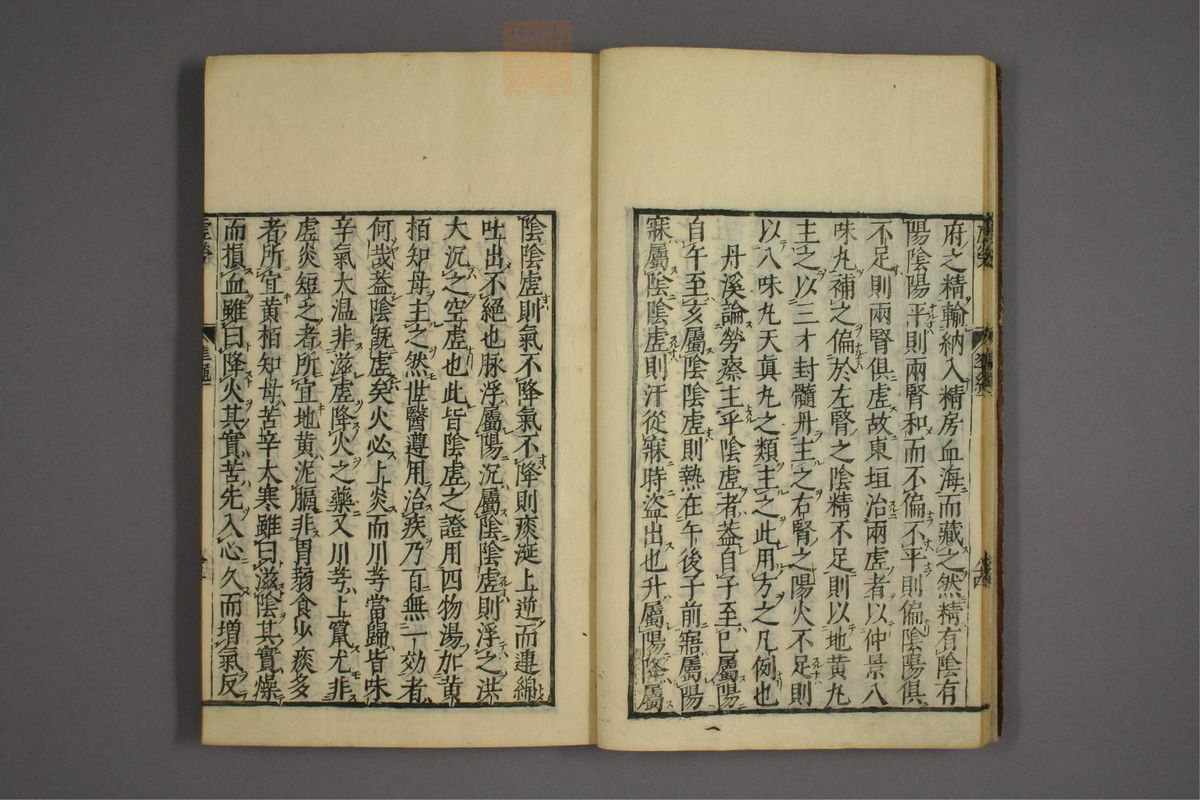 府之精輸納入精房血海而藏之然精有陰有
陽陰陽平則兩腎和而不偏不平則偏陰陽俱
不足則兩腎俱虛故東垣治兩虛者以仲景八
味丸補之偏於左腎之陰精不足則以地黄丸
主之以三才封髓丹主之右腎之陽火不足則
以八味丸天真丸之類主之此用方之凡例也
丹溪論勞瘵主乎陰虛者蓋自子至巳屬陽
自午至亥屬陰陰虛則熱在午後子前寤屬陽
寐屬陰陰虛則汗從寐時盜出也升屬陽降屬
陰陰虛則氣不降氣不降則痰涎上逆而連綿
吐出不絕也脉浮屬陽沉屬陰陰虛則浮之洪
大沉之空虛也此皆陰虛之證用四物湯加黄
栢知母主之然世醫遵用治疾乃百無一効者
何㢤蓋陰旣虛矣火必上炎而川芎當歸皆味
辛氣大温非滋虛降火之藥又川芎上竄尤非
虛炎短乏者所宜地黄泥膈非胃弱食少痰多
者所宜黄栢知母苦辛大寒雖曰滋陰其實燥
而損血雖曰降火其實苦先入心久而增氣反